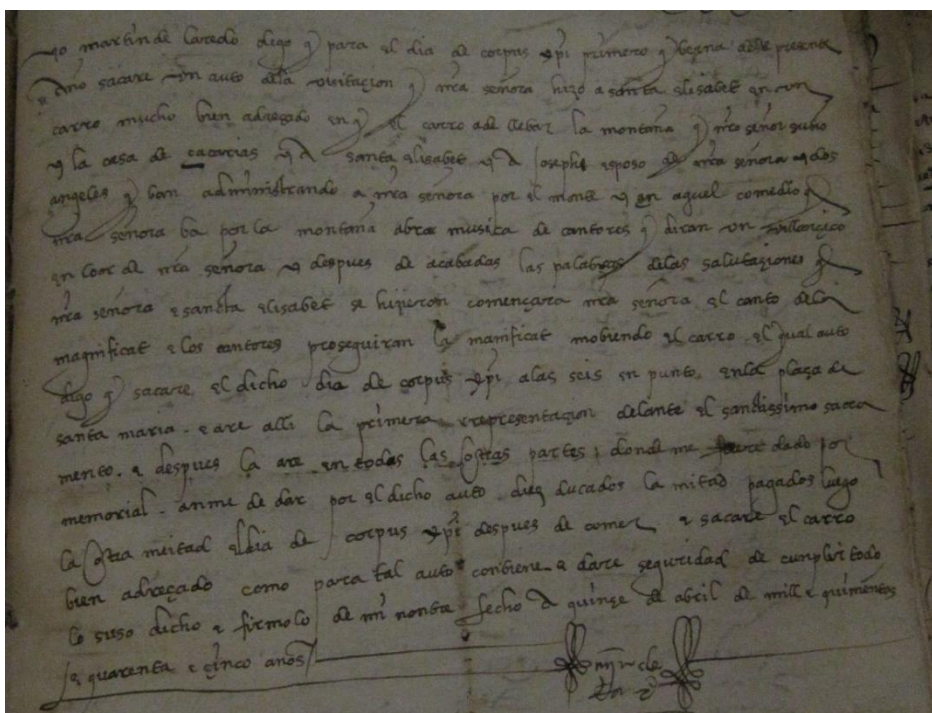 yo martin de laredo digo q para el dia de corpus xpi primero q berna deste presente
año sacare un auto dela vvitaçion q nra señora hizo a santa elisabet en un
carro mucho bien adreçado en q el carro a de llebar la montaña q nro señor subio
y la casa de cacarias y a santa elisabet y a Josephe esposo de nra señora y dos
angeles q ban administrando a nra señora por el monte y en aquel comedio q
nra señora ba por la montaña abra musica de cantores q diran un villançico
en loor de nra señora y despues de acabadas las palabras delas salutaziones q
nra señora e sancta elisabet se hizieron començara nra señora el canto dela
magnificat e los cantores proseguiran la manificat mobiendo el carro, el qual auto
digo q sacare el dicho dia de corpus xpi alas seis en punto, enla plaça de
santa maria. e are alli la primera rrepresentaçion delante el santissimo sacra
mento. e despues la are en todas las otras partes donde me dado por
memorial. anme de dar por el dicho auto diez ducados la mitad pagados luego
la otra meitad el dia de corpus xpi despues de comer e sacare el carro
bien adreçado como para tal auto conbiene e dare seguridad de cunplir todo
lo suso dicho e firmolo de mi nonbre fecho a quinze de abril de mill e quinientos
e quarenta e çinco años
mrn de